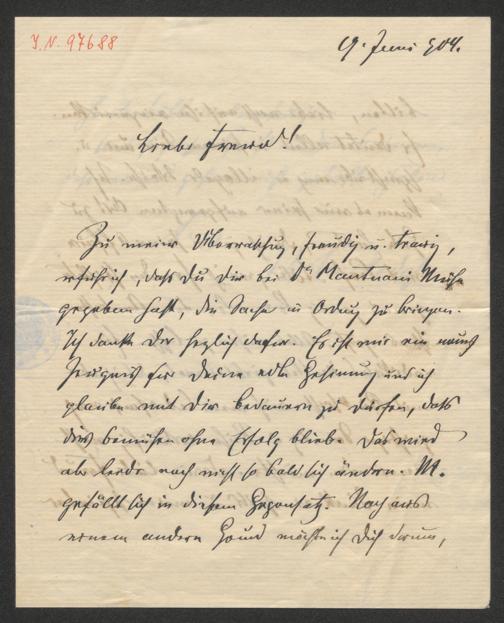 J. N. 97688
9. Juni 904.
Lieber Freund!
Zu meiner Überraschung, freudig u. traurig,
erfuhr ich, dass Du Dir bei Dr Mantuani Mühe
gegeben hast, die Sache in Ordnung zu bringen.
Ich danke Dir herzlich dafür. Es ist mir ein neues
Zeugnis für Deine edle Gesinnung und ich
glaube mit Dir bedauern zu dürfen, dass
dies bemühen ohne Erfolg blieb. Das wird
aber leider noch nicht so bald sich ändern. M.
gefällt sich in diesem Gegensatz. Noch aus
einem andern Grund möchte ich Dich darum,